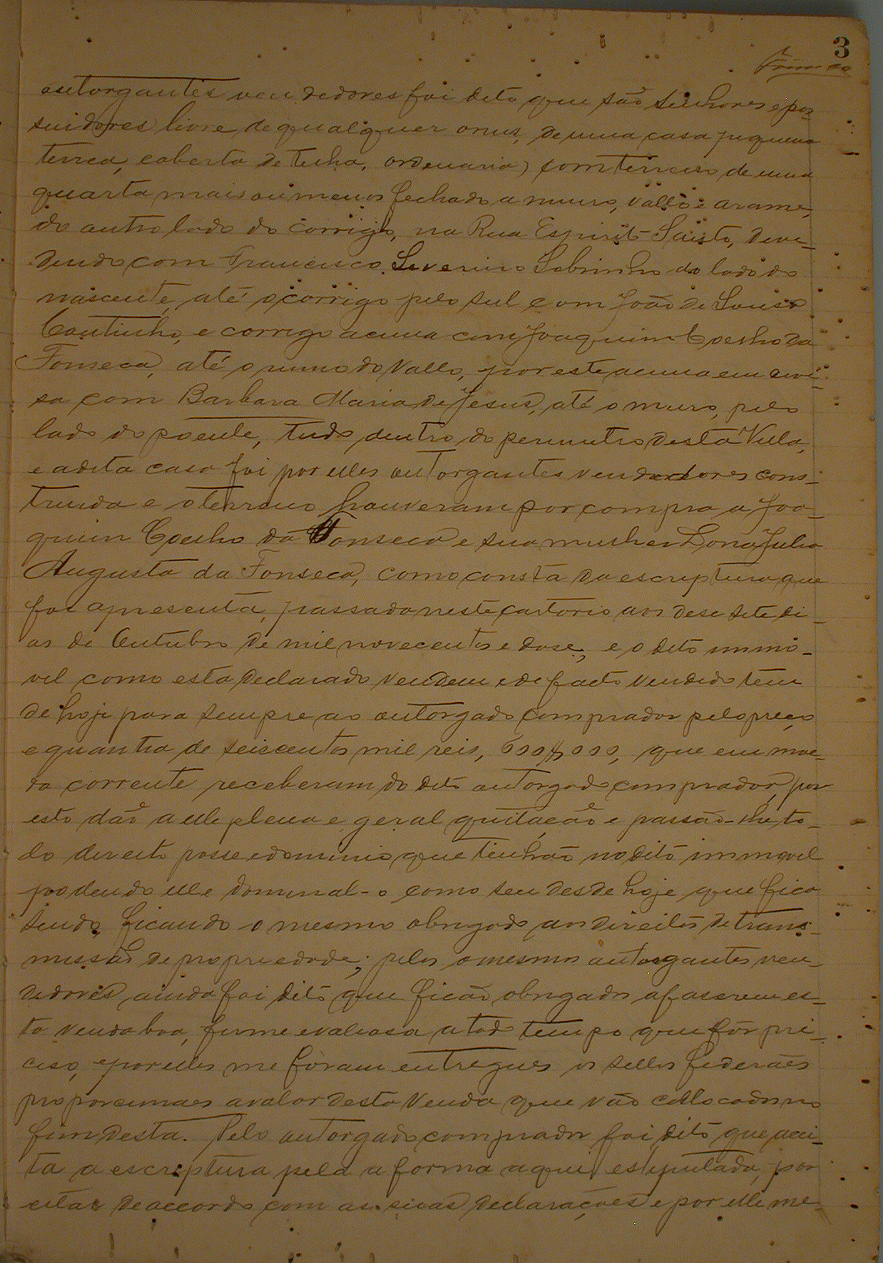 3
outorgantes vendedores foi dito que são senhores e pos-
suidores livre de qualquer onus, de uma casa pequena
terrea, coberta de telha, ordenaria) com terreno de uma
quarta mais ou menos fechado a muro, vallo e arame,
do outro lado do corrigo, na Rua Espirit-Santo, deve-
dendo com Francisco Severino Sobrinho do lado do
nascente, até o corrigo pelo sul com João de Sousa
Coutinho, e corrego acima com Joaquim Coelho da
Fonseca, até o rumo do Vallo, por este acima em devi-
sa com Barbara Maria de Jesus, até o muro, pelo
lado do poente, tudo dentro do permitro desta Villa,
e a dita casa foi por elles outorgantes vendedores cons-
truida e o terreno houveram por compra a Joa-
quim Coelho da Fonseca e sua mulher Dona Julia
Augusta da Fonseca, como consta da escriptura que
foi apresenta, passada neste cartorio aos desesete di-
as de Outubro de mil novecentos e dose, e o dito immo-
vel como esta declarado vendem e de facto vendido tem
de hoje para sempre ao outorgado comprador pelo preço
e quantia de seiscentos mil reis, 600$000, que em moe-
da corrente receberam do dito outorgado comprador, por
esto dão a elle plena e geral quitação e passão-lhe to-
do direito posse e dominio que tenhão no dito immovel
podendo elle dominal-o como seu desde hoje que fica
sendo, ficando o mesmo obrigado aos direitos de trans-
missão de propriedade; pelos o mesmos outorgantes ven-
dedores ainda foi dito que ficão obrigados a faserem es-
ta venda boa, firme e valiosa a todo tempo que fôr pri-
ciso, e por elles me foram entregues os sellos federães
proporcionaes a valor desta venda que vão collocados no
fim desta. Pelo outorgado comprador foi dito que acei-
ta a escriptura pela a forma aqui estipulada, por
estar de accordo com as suas declarações e por elle me